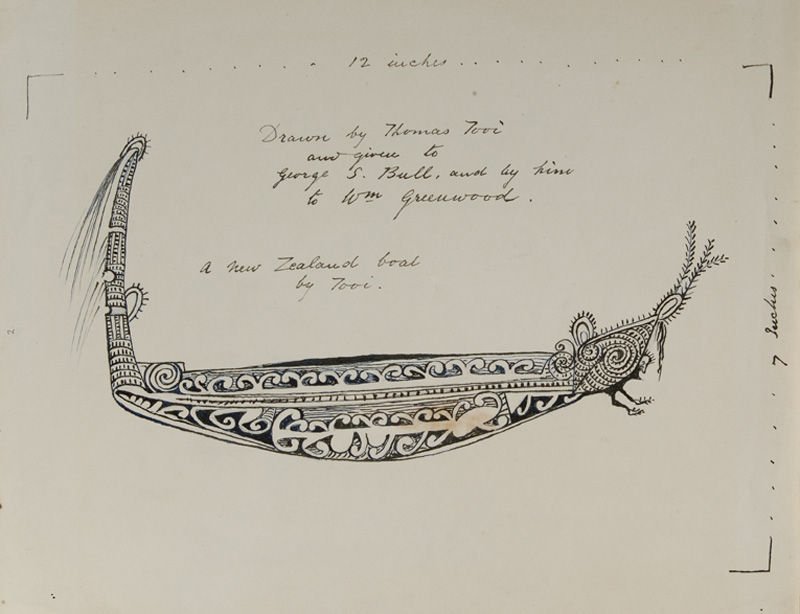 12 inches
Drawn by Thomas Tooi
and given to
George S. Bull, and by him
to Wm Greenwood.
a New Zealand boat
by Tooi.
7 Inches
2